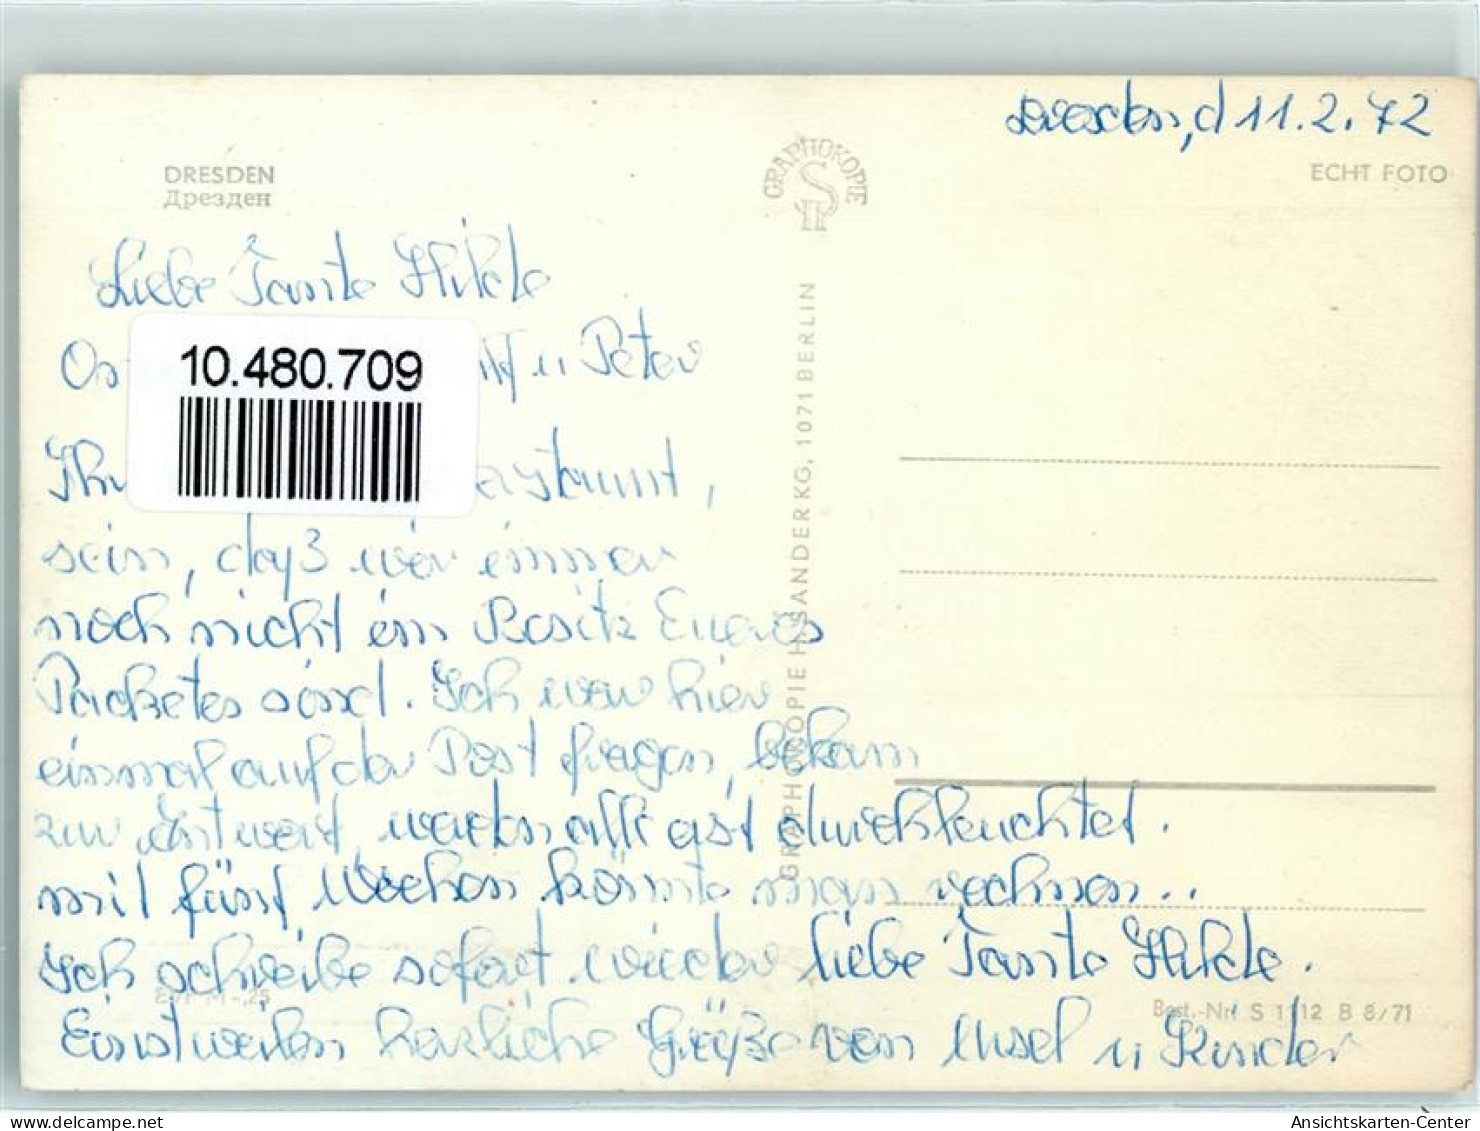 Dresden, d 11.2.72
DRESDEN
Дрезден
GRAPHOKOPIE
HS
ECHT FOTO
Liebe Tante Hilde
u Peter
10.480.709
erstaunt,
sein, daß wir immer
noch nicht im Besitz Eueres
Packetes sind. Ich war hier
einmal auf der Post fragen, bekam
zur Antwort, werden alle erst durchleuchtet.
mit fünf Wochen könnte man rechnen..
Ich schreibe sofort wieder liebe Tante Hilde.
Einstweilen herzliche Grüße von Ursel u Kinder
GRAPHOKOPIE H. SANDER KG, 1071 BERLIN
EVP M -,25
Best.-Nr. S 1112 B 8/71
Ansichtskarten-Center